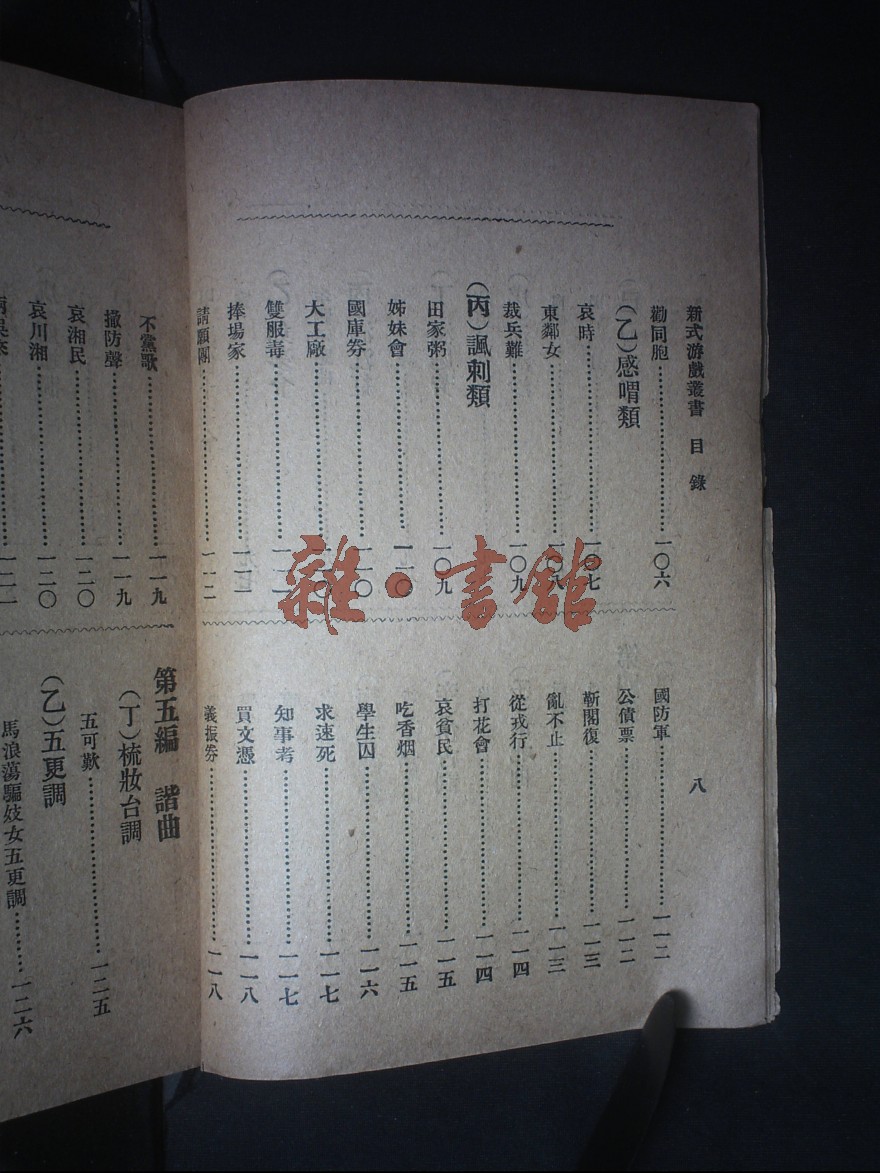 新式游戲叢書 目錄 八
勸同胞…………一〇六
(乙)感喟類
哀時…………一〇七
東鄰女…………一〇八
裁兵難…………一〇九
(丙)諷刺類
田家粥…………一〇九
姊妹會…………一一〇
國庫券…………一一〇
大工廠
雙服毒
捧場家…………一一一
請願團…………一一二
國防軍…………一一二
公債票…………一一二
靳閣復…………一一三
亂不止…………一一三
從戎行…………一一四
打花會…………一一四
哀貧民…………一一五
吃香烟…………一一五
學生囚…………一一六
求速死…………一一七
知事考…………一一七
買文憑…………一一八
義振券…………一一八
不黨歌…………一一九
撤防聲…………一一九
哀湘民…………一二〇
哀川湘…………一二〇
一二一
第五編 諧曲
(丁)梳妝台調
五可歎…………一二五
(乙)五更調
馬浪蕩騙妓女五更調…………一二六
雜·書館